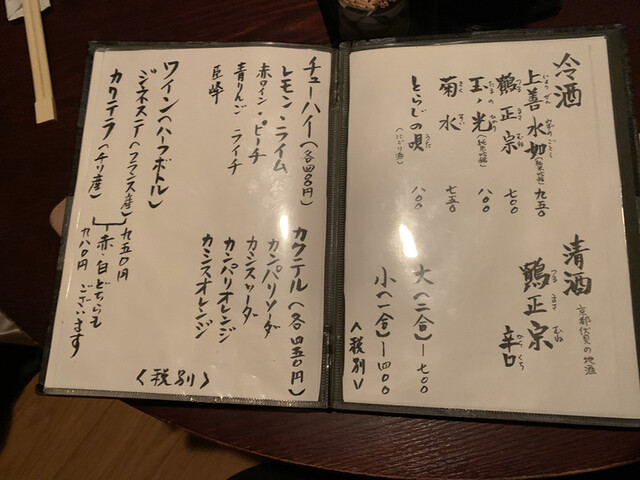 冷酒
上善水如(純米吟醸)九五〇
じょうぜんみずのごとし
鶴正宗 七〇〇
つるまさむね
玉ノ光(純米吟醸)八〇〇
たまのひかり
菊水 七五〇
きくすい
とらじの唄(にごり酒)八〇〇
うた
清酒
京都伏見の地酒
鶴正宗 辛口
つるまさむね からくち
大(二合)―七〇〇
小(一合)―四〇〇
<税別>
チューハイ(各四〇〇円)
レモン・ライム
赤ワイン・ピーチ
青りんご・ライチ
巨峰
カクテル(各四五〇円)
カンパリソーダ
カシスソーダ
カンパリオレンジ
カシスオレンジ
ワイン(ハーフボトル)
ジネステ(フランス産)九五〇円
カリテラ(チリ産)九八〇円
赤・白どちらも
ございます
<税別>